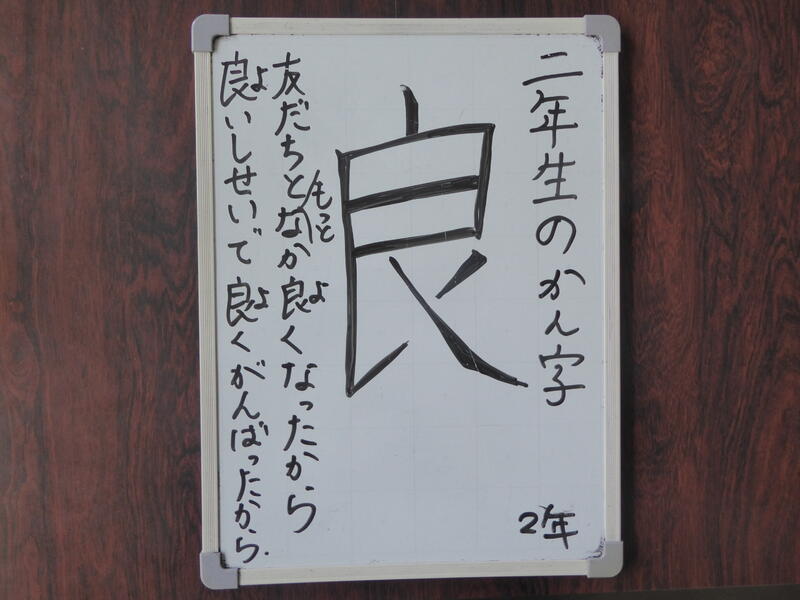 二年生のかん字
良
友だちともっとなか良くなったから
よ
良いしせいで良くがんばったから.
よ
よ
2年